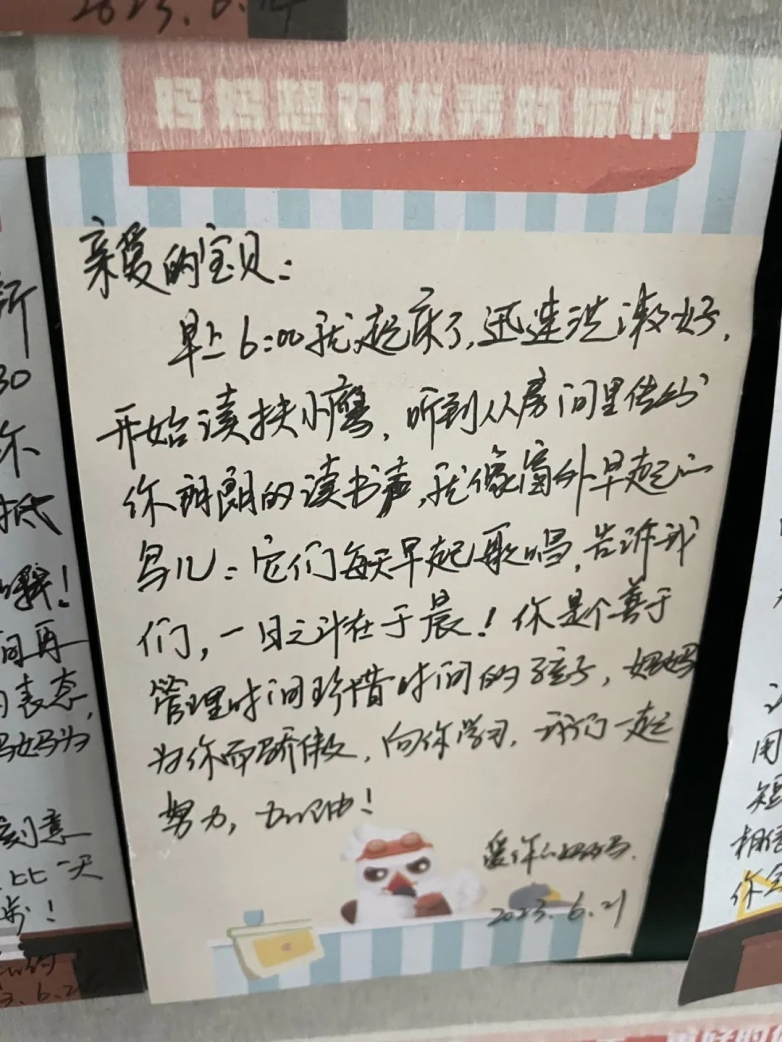 2023.6.
妈妈想对优秀的你说
亲爱的宝贝：
早上6:00我起床了,迅速洗漱好,
开始读扶小鹰,听到从房间里传出
你朗朗的读书声,就像窗外早起的
鸟儿：它们每天早起歌唱,告诉我
们,一日之计在于晨！你是个善于
管理时间珍惜时间的孩子,妈妈
为你而骄傲,向你学习,我们一起
努力,加油！
爱你的妈妈.
2023.6.21
所
30
你
抵
啊！
间再
表态,
妈妈为
刻意
比一天
步！
用
短
相信
你会